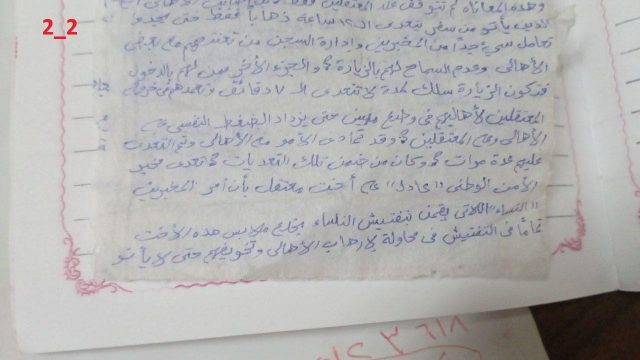 2_2
وهذه المعاناة لم تتوقف عند المعتقلين فقط
الذين يأتو من سفر يتعدى الـ ١٢ ساعة ذهاباً فقط حتى يجدوا
تعامل سيء جداً من المخبرين وإدارة السجن من تعنتهم مع بعض
الأهالي وعدم السماح لهم بالزيارة، والجزء الأخر يسمح لهم بالدخول
فتكون الزيارة سلك لمدة لا تتعدى الـ ٧ دقائق
المعتقلين لأهاليهم في وضع مهين حتى يزداد الضغط النفسي على
الأهالي وعلى المعتقلين، وقد تمادى الأمر مع الأهالي وتم التعدي
عليهم عدة مرات، وكان من ضمن تلك التعديات، تعدى مخبر
الأمن الوطني "عادل" على أخت معتقل بأن أمر المخبرين
"النساء" اللاتي يقمن بتفتيش النساء بخلع ملابس هذه الأخت
تماماً في التفتيش في محاولة لإرهاب الأهالي وتخويفهم حتى لا يأتو